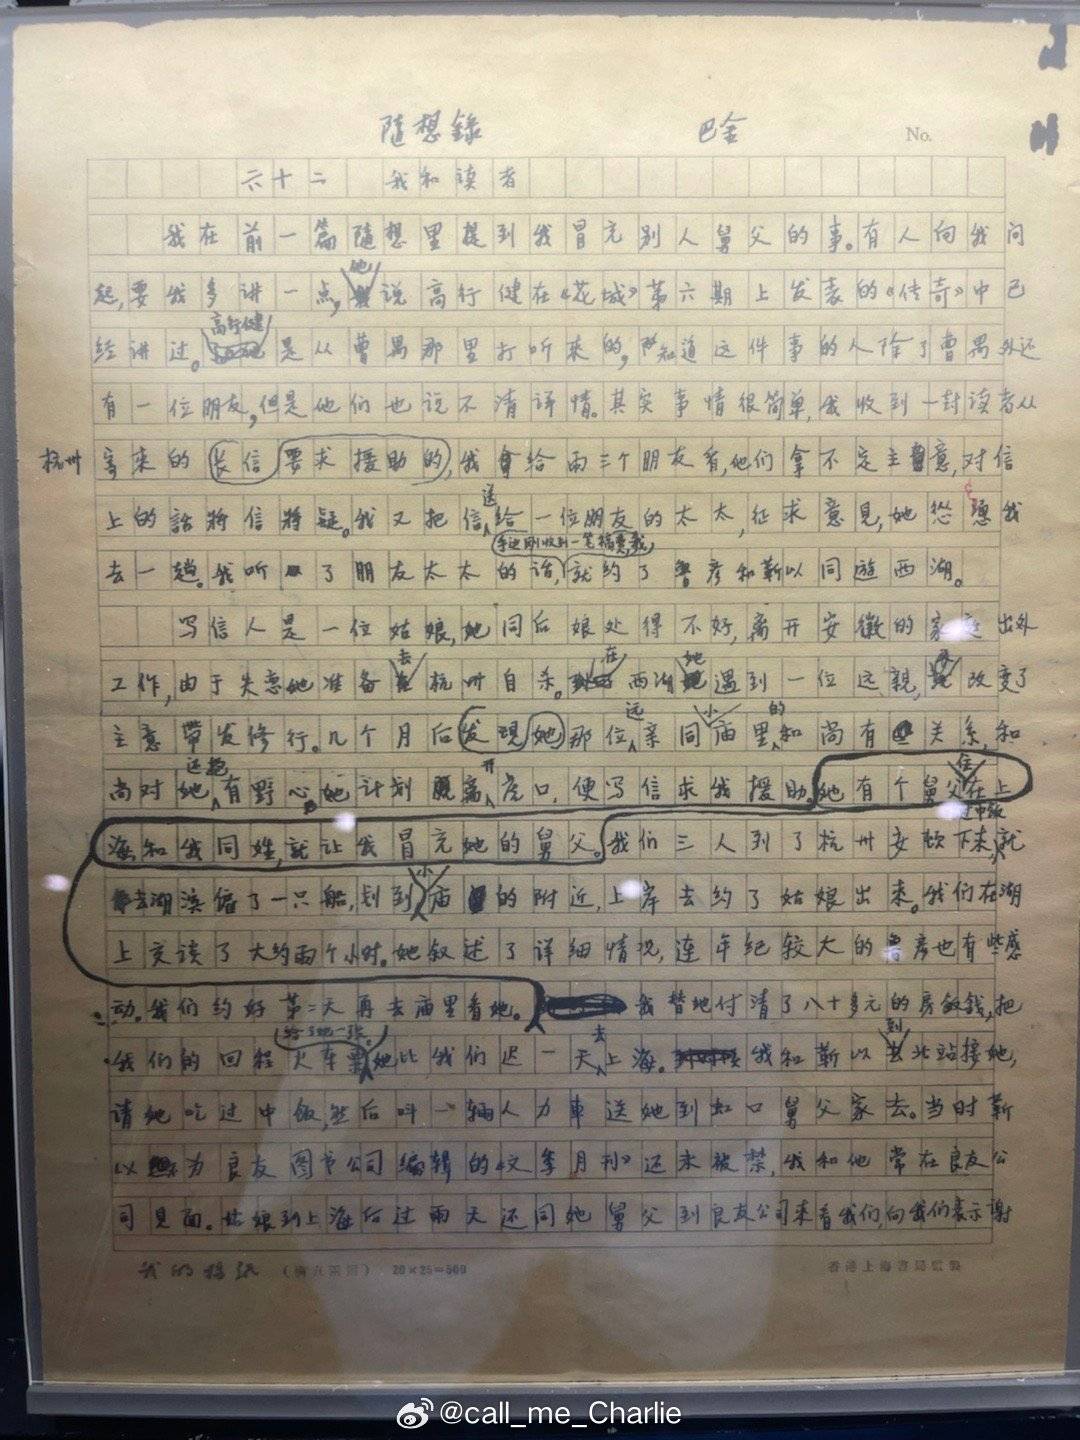 随想錄 巴金 No.
六十二 我和读者
我在前一篇随想里提到我冒充别人舅父的事。有人向我问
她
起,要我多讲一点,说高行健在《花城》第六期上发表的《传奇》中已
高行健
经讲过。是从曹禺那里打听来的,知道这件事的人除了曹禺外还
有一位朋友,但是他们也说不清详情。其实事情很简单,我收到一封读者从
杭州寄来的长信要求援助的,我拿给两三个朋友看,他们拿不定主意,对信
送
上的話将信将疑。我又把信给一位朋友的太太,征求意見,她慫恿我
手边刚收到一笔稿費,我
去一趟。我听了朋友太太的话,就约了鲁彦和靳以同遊西湖。
写信人是一位姑娘,她同后娘处得不好,离开安徽的家庭出外
去 在 她
工作,由于失意她准备杭州自杀。西湖遇到一位远親,改变了
远 小 的
主意帶发修行。几个月后发現她那位亲同庙里和尚有关系,和
还抱 开
尚对她有野心,她计划脱离虎口,便写信求我援助。她有个舅父在上
住
海和我同姓,就让我冒充她的舅父。我们三人到了杭州安頓下来,就
小
去湖滨僱了一只船,划到庙的附近,上岸去约了姑娘出来。我们在湖
上交谈了大约两个小时。她叙述了详细情况,連年纪较大的鲁彦也有些感
动。我们约好第二天再去庙里看她。我替她付清了八十多元的房飯钱,把
给了她一张。 去 到
我们的回程火车票她比我们迟一天上海。我和靳以北站接她,
请她吃过中飯,然后叫一辆人力車送她到虹口舅父家去。当时靳
以为良友图书公司编辑的《文季月刊》还未被禁,我和他常在良友公
司見面。姑娘到上海后过两天还同她舅父到良友公司来看我们,向我们表示謝
我的稿紙 20×25=500 香港上海書局監製
@call_me_Charlie